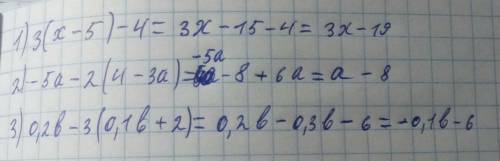 1) 3(x-5)-4= 3x-15-4= 3x-19
2) -5a-2(4-3a)=-5a-8+6a=a-8
3) 0,2b-3(0,1b+2)= 0,2b-0,3b-6=-0,1b-6